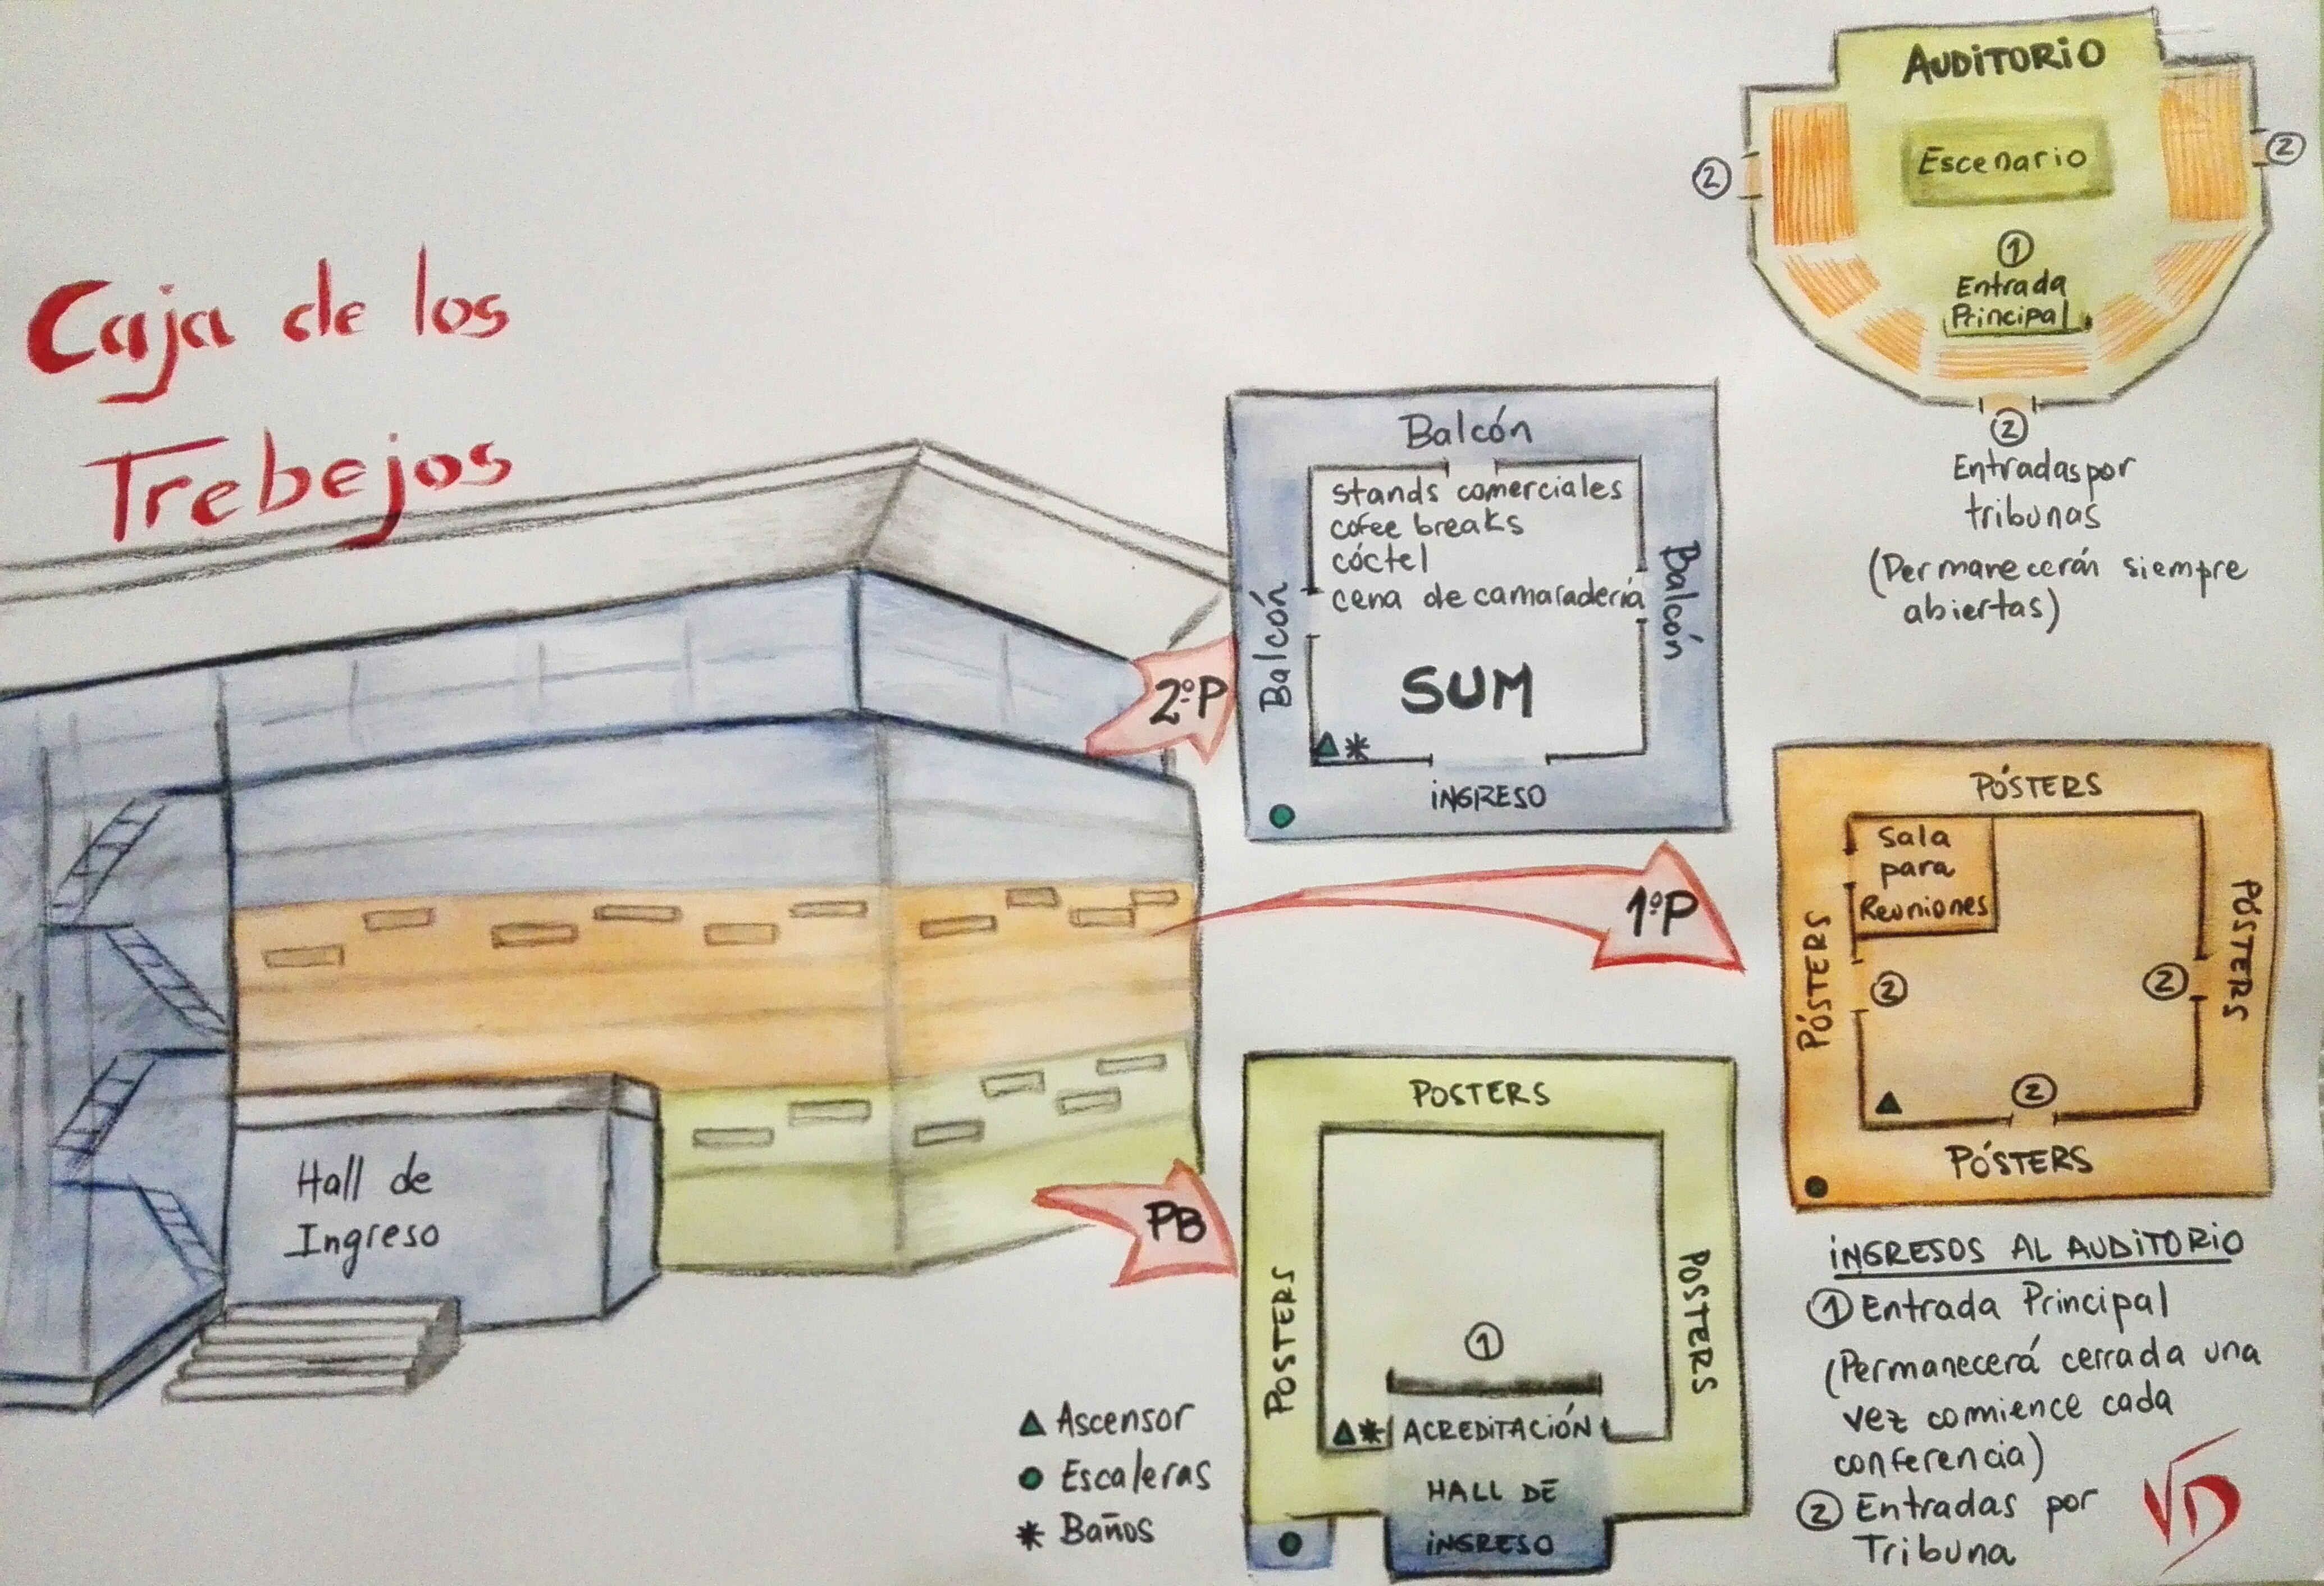 Caja de los
Trebejos
AUDITORIO
Escenario
②
②
①
Entrada
Principal
②
Entradas por
tribunas
(Permanecerán siempre
abiertas)
2ºP
Balcón
Balcón
Balcón
stands comerciales
cofee breaks
cóctel
cena de camaradería
SUM
*
iNGRESO
1ºP
PÓSTERS
PÓSTERS
PÓSTERS
Sala
para
Reuniones
②
②
②
PÓSTERS
Hall de
Ingreso
PB
POSTERS
POSTERS
POSTERS
①
* ACREDITACIÓN
HALL DE
iNGRESO
Ascensor
Escaleras
* Baños
iNGRESOS AL AUDITORIO
① Entrada Principal
(Permanecerá cerrada una
vez comience cada
conferencia)
② Entradas por
Tribuna
VD